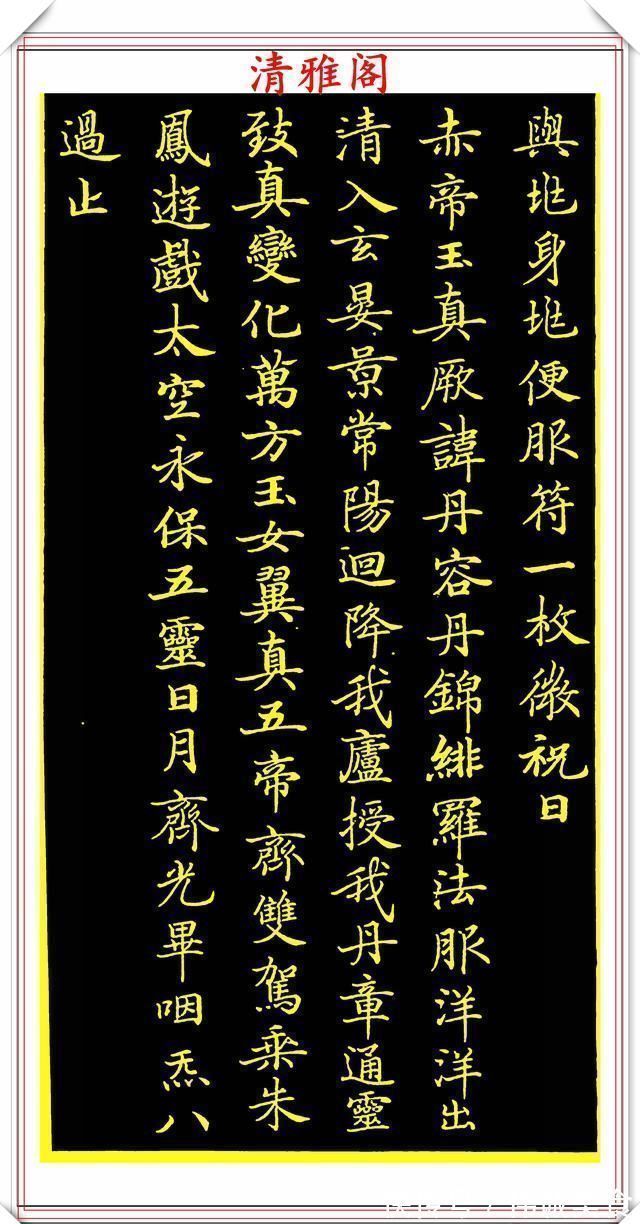 清雅阁
與兆身兆便服符一枚微祝曰
赤帝玉真厥諱丹容丹錦緋羅法服洋洋出
清入玄晏景常陽迴降我廬授我丹章通靈
致真變化萬方玉女翼真五帝齊雙駕乘朱
鳳遊戲太空永保五靈日月齊光畢咽炁八
過止